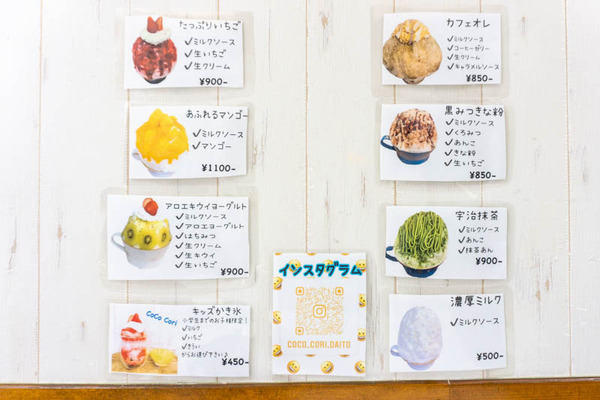 たっぷりいちご
✓ミルクソース
✓生いちご
✓生クリーム
¥900-
あふれるマンゴー
✓ミルクソース
✓マンゴー
¥1100-
アロエキウイヨーグルト
✓ミルクソース
✓アロエヨーグルト
✓はちみつ
✓生クリーム
✓生キウイ
✓生いちご
¥900-
CoCo Cori
キッズかき氷
※学生までのお子様限定!
✓ミルク
✓いちご
✓きうい
からお選び下さい♪
¥450-
インスタグラム
COCO_CORI.DAITO
カフェオレ
✓ミルクソース
✓コーヒーゼリー
✓生クリーム
✓キャラメルソース
¥850-
黒みつきな粉
✓ミルクソース
✓くろみつ
✓あんこ
✓きな粉
✓生いちご
¥850-
宇治抹茶
✓ミルクソース
✓あんこ
✓抹茶あん
¥900-
濃厚ミルク
✓ミルクソース
¥500-